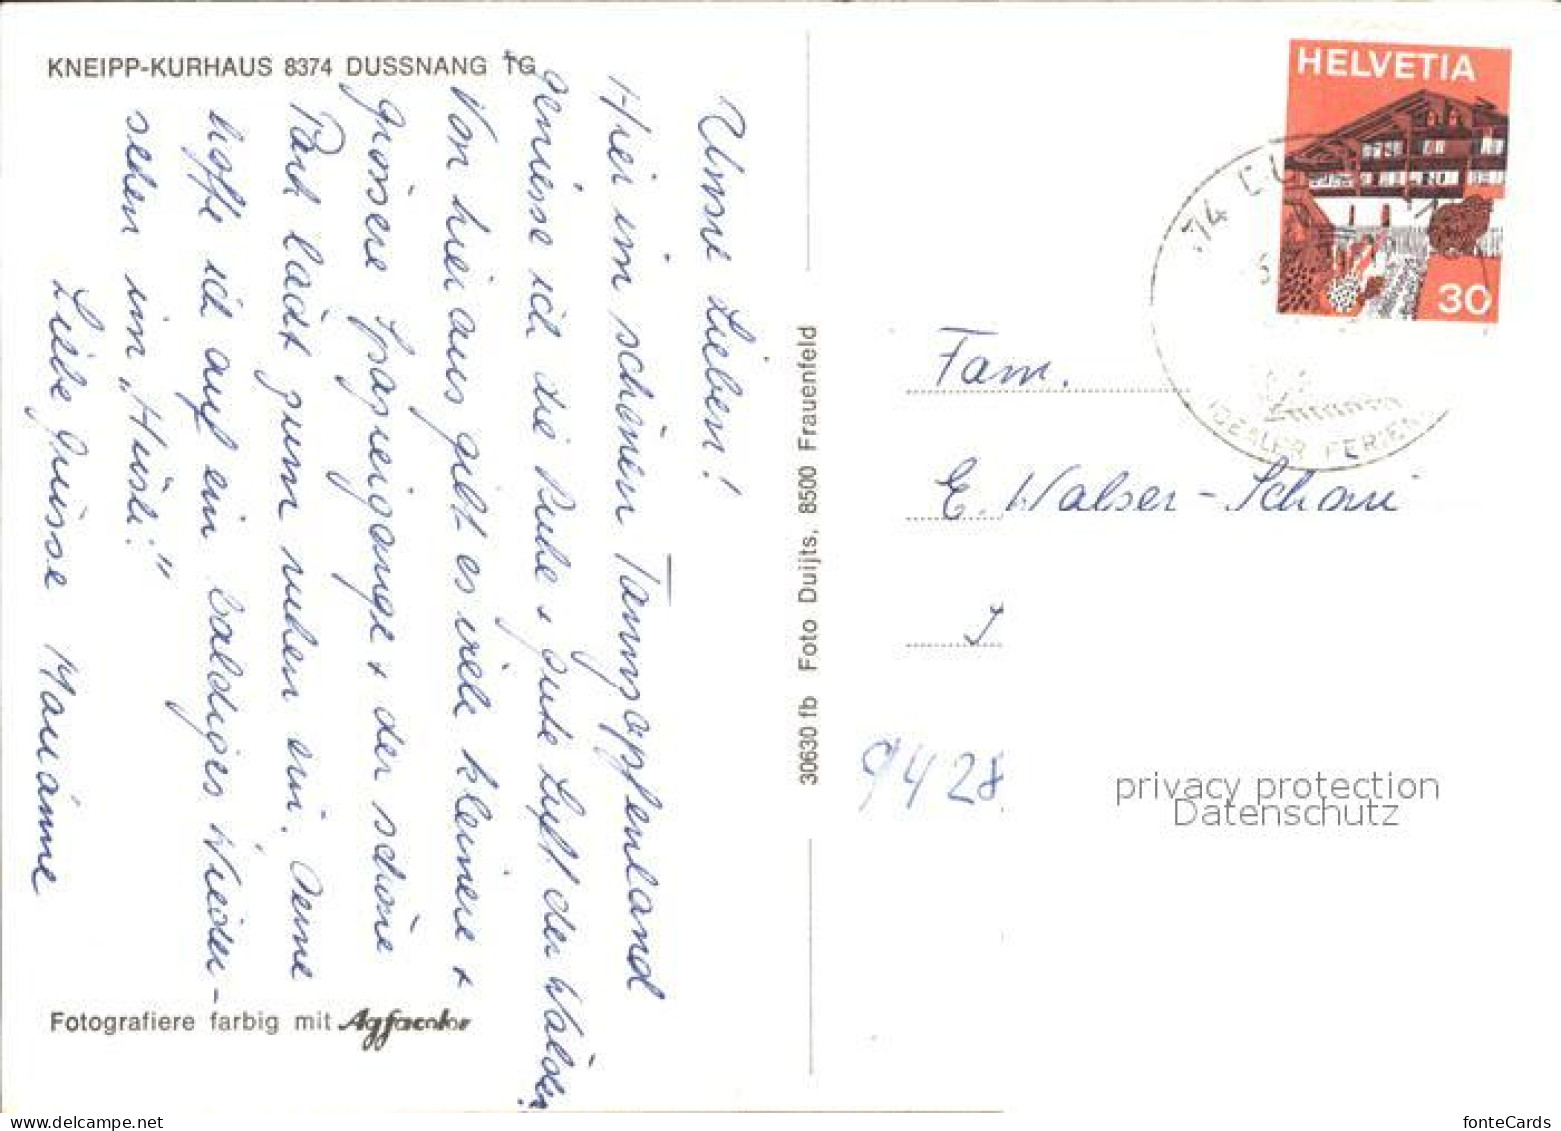 KNEIPP-KURHAUS 8374 DUSSNANG TG
Unsre Lieben!
Hier im schönen Tannzapfenland
geniesse ich die Ruhe + gute Luft der Wälder.
Von hier aus gibt es viele kleinere +
grössere Spaziergänge + der schöne
Park lädt zum ruhen ein. Gerne
hoffe ich auf ein baldiges Wieder-
sehen im „Hüsli."
Liebe Grüsse Marianne
Fotografiere farbig mit Agfacolor
30630 fb Foto Duijts, 8500 Frauenfeld
HELVETIA
30
IDEALER FERIEN
Fam.
E. Walser-Schori
9428
privacy protection
Datenschutz
fonteCards